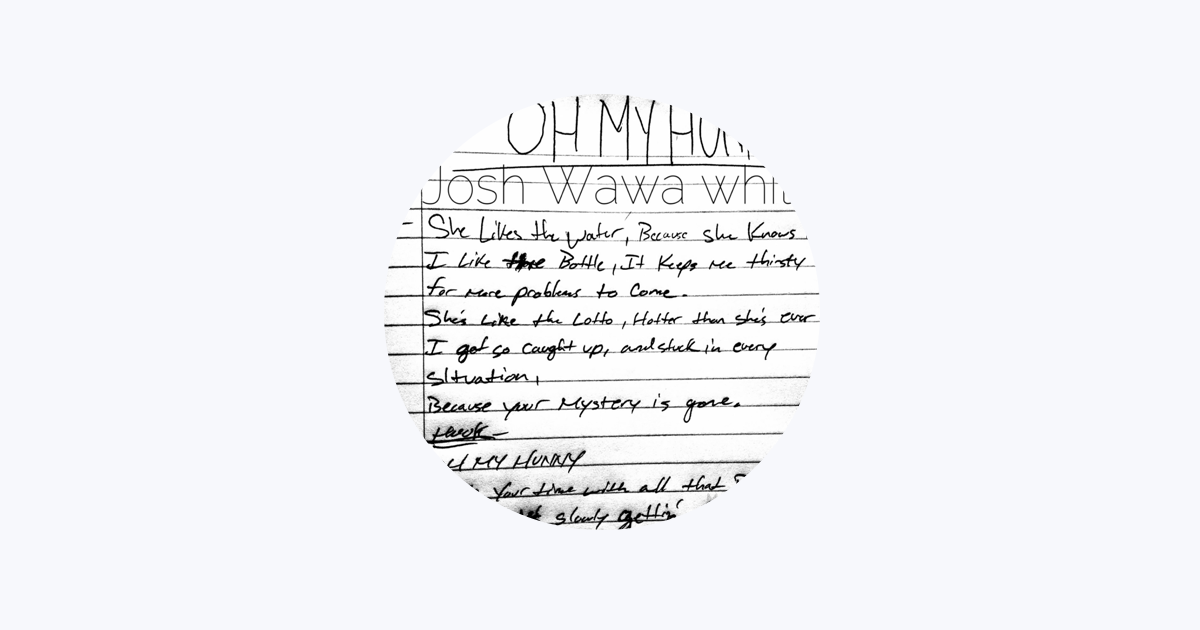 OH MY HUN
Josh Wawa whi
- She Likes the water, Because she Knows
I Like Bottle, It Keeps me thirsty
for more problems to Come.
She's Like the Lotto, Hotter than she's ever
I got so caught up, and stuck in every
situation,
Because your Mystery is gone.
Hook -
H MY HUNNY
Your time with all that
slowly gettin'